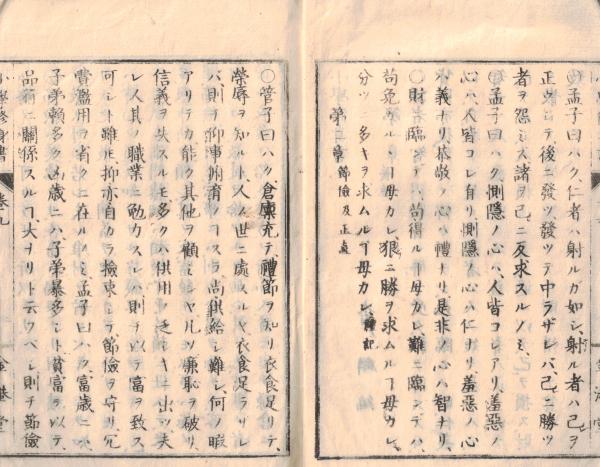 〇孟子曰ハク、仁者ハ射ルガ如シ、射ル者ハ己ヲ
正ウシテ後ニ發ツ發ツテ中ラザレバ、己ニ勝ツ
者ヲ怨ミズ諸ヲ己ニ反求スルノミ、
〇孟子曰ハク、惻隱ノ心ハ、人皆コレアリ、羞惡ノ
心ハ、人皆コレ有リ、惻隱ノ心ハ仁ナリ、羞惡ノ心
ハ義ナリ、恭敬ノ心ハ禮ナリ、是非ノ心ハ智ナリ、
〇財ニ臨ンデハ、苟得ルヿ毋カレ、難ニ臨ンデハ、
苟免ルルヿ毋カレ、狠ニ勝ヲ求ムルヿ毋カレ、
分ツニ多キヲ求ムルヿ毋カレ、禮記
第二章 節儉及正直
〇管子曰ハク、倉廩充テ禮節ヲ知リ、衣食足リテ、
榮辱ヲ知ルト、人ノ世ニ處スルヤ、衣食足ラザレ
バ則ヲ仰事俯育ノコスラ尚供給シ難シ、何ノ暇
アリテカ能ク其他ヲ顧ミンヤ、凡ソ廉恥ヲ破リ、
信義ヲ失スルモ、多クハ供用ノ乏シキニ出ヅ、夫
レ人其ノ職業ニ勉カスレバ則ヲ以テ富ヲ致ス
可シト雖ㇳモ、抑亦自カラ撿束シテ、節儉ヲ守リ、冗
費濫用ヲ省クニ在ルノミ、孟子曰ハク、富歳ニハ
子弟賴多ク、凶歳ニハ、子弟暴多シト、貧富ヲ以テ、
品行ニ關係スルヿ大ナリト云フベシ則チ節儉
小學修身書 卷九 金港堂